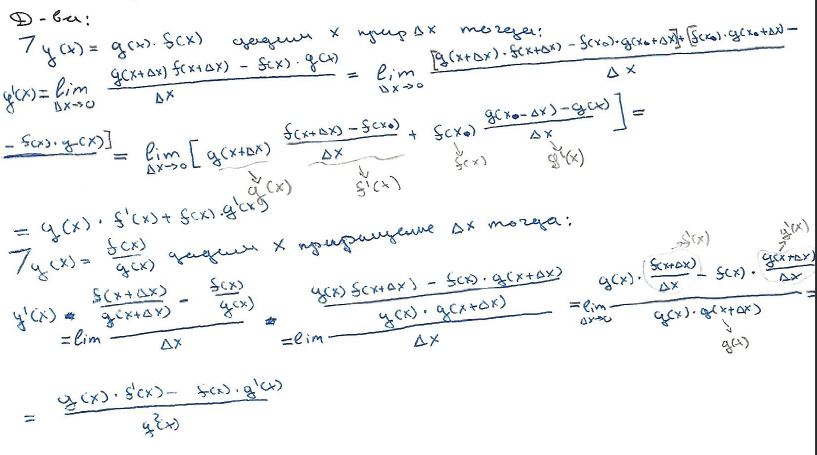 Д-ва:
7 y(x) = g(x)·f(x) дадим x прир Δx тогда:
y'(x) = lim Δx→0 (g(x+Δx) f(x+Δx) − f(x)·g(x)) / Δx = lim Δx→0 ([g(x+Δx)·f(x+Δx) − f(x₀)·g(x₀+Δx)] + [f(x₀)·g(x₀+Δx) −
− f(x)·g(x)]) / Δx = lim Δx→0 [g(x+Δx) (f(x+Δx) − f(x₀)) / Δx + f(x₀) (g(x₀−Δx) − g(x)) / Δx] =
↓ g(x) ↓ f'(x) ↓ f(x) ↓ g'(x)
= g(x)·f'(x) + f(x)·g'(x)
7 y(x) = f(x) / g(x) дадим x приращение Δx тогда:
→ f'(x) → g'(x)
y'(x) = lim (f(x+Δx) / g(x+Δx) − f(x) / g(x)) / Δx = lim ((g(x) f(x+Δx) − f(x)·g(x+Δx)) / (g(x)·g(x+Δx))) / Δx = lim Δx→0 (g(x)·f(x+Δx) / Δx − f(x)·g(x+Δx) / Δx) / (g(x)·g(x+Δx)) =
↓ g(x)
= (g(x)·f'(x) − f(x)·g'(x)) / g²(x)